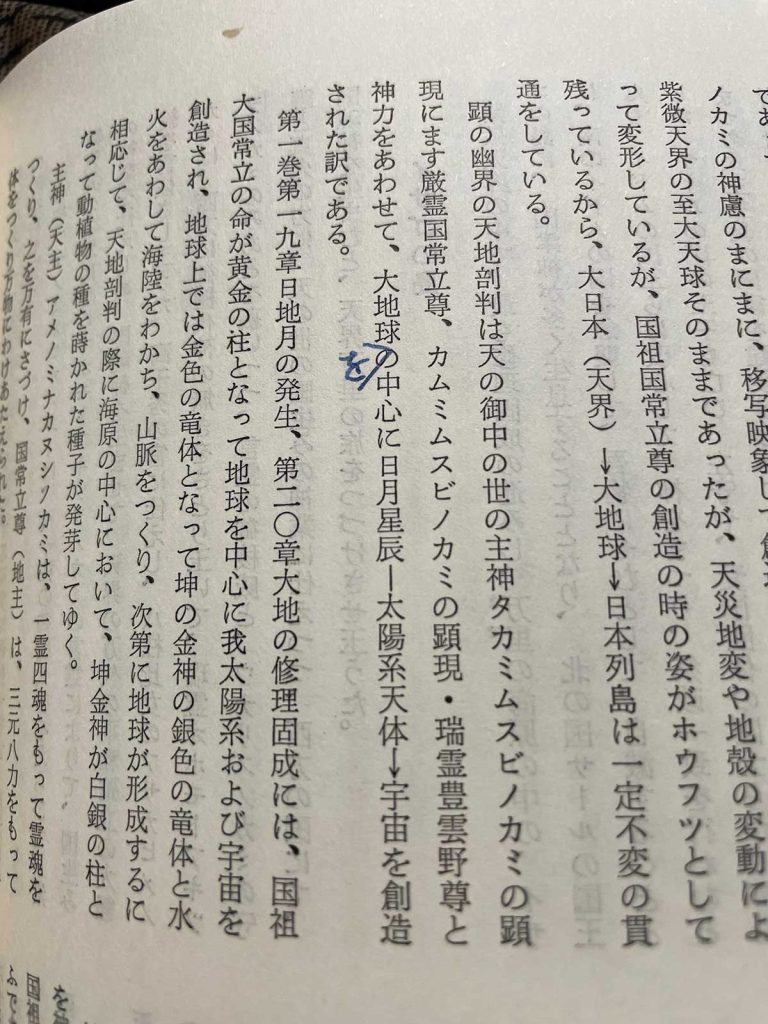 ノカミの神慮のまにまに、移写映象して創造
紫微天界の至大天球そのままであったが、天災地変や地殻の変動によ
って変形しているが、国祖国常立尊の創造の時の姿がホウフツとして
残っているから、大日本（天界）→大地球→日本列島は一定不変の貫
通をしている。
顕の幽界の天地剖判は天の御中の世の主神タカミムスビノカミの顕
現にます厳霊国常立尊、カムミムスビノカミの顕現・瑞霊豊雲野尊と
神力をあわせて、大地球の中心に日月星辰ー太陽系天体→宇宙を創造
を
された訳である。
第一巻第一九章日地月の発生、第二〇章大地の修理固成には、国祖
大国常立の命が黄金の柱となって地球を中心に我太陽系および宇宙を
創造され、地球上では金色の竜体となって坤の金神の銀色の竜体と水
火をあわして海陸をわかち、山脈をつくり、次第に地球が形成するに
相応じて、天地剖判の際に海原の中心において、坤金神が白銀の柱と
なって動植物の種を蒔かれた種子が発芽してゆく。
主神（天主）アメノミナカヌシノカミは、一霊四魂をもって霊魂を
つくり、之を万有にさづけ、国常立尊（地主）は、三元八力をもって
体をつくり万物にわけあたえられた。